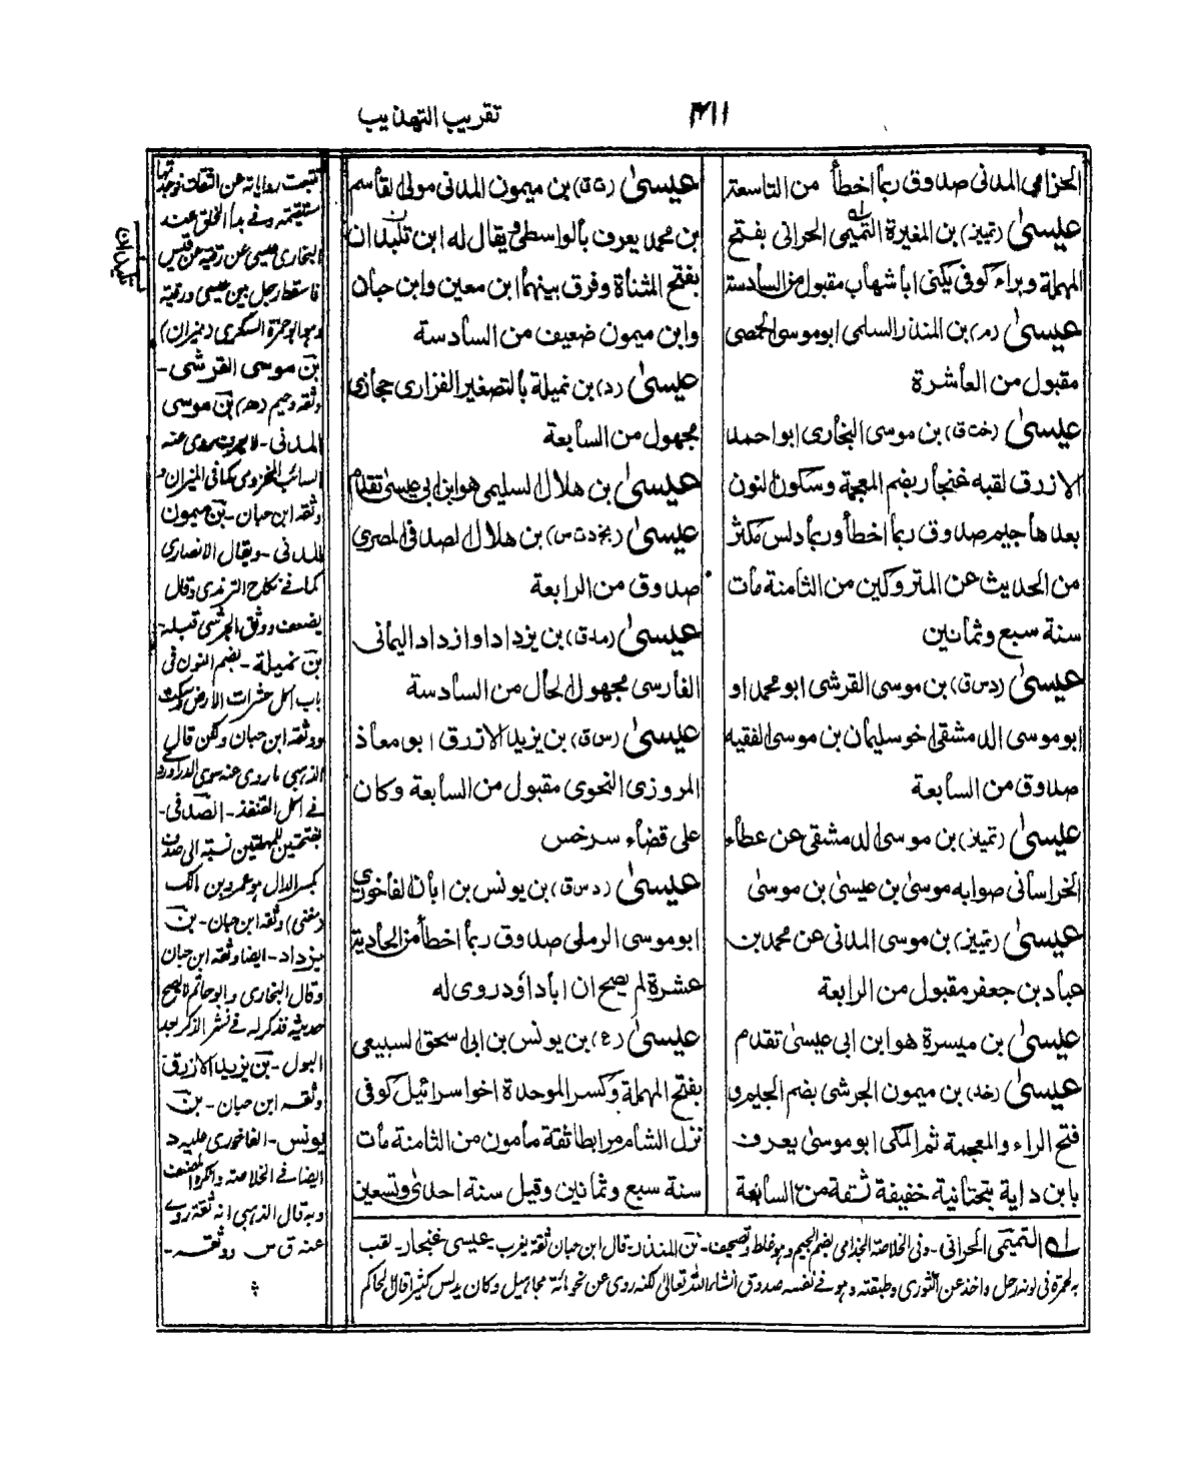 تقريب التهذيب
٣١١
الحزامى المدنى صدوق ربما اخطأ من التاسعة
عيسىٰ (تمييز) بن المغيرة التميمى الحرانى بفتح
المهملة وبراء كوفى يكنى ابا شهاب مقبول من السادسة
عيسىٰ (م) بن المنذر السلمى ابو موسى الحمصى
مقبول من العاشرة
عيسىٰ (خت ق) بن موسى البخارى ابو احمد
الازرق لقبه غنجار بضم المعجمة وسكون النون
بعدها جيم صدوق ربما اخطأ وربما دلس مكثر
من الحديث عن المتروكين من الثامنة مات
سنة سبع وثمانين
عيسىٰ (دس ق) بن موسى القرشى ابو محمد او
ابو موسى الدمشقى اخو سليمان بن موسى الفقيه
صدوق من السابعة
عيسىٰ (تمييز) بن موسى الدمشقى عن عطاء
الخراسانى صوابه موسىٰ بن عيسىٰ بن موسىٰ
عيسىٰ (تمييز) بن موسى المدنى عن محمد بن
عباد بن جعفر مقبول من الرابعة
عيسىٰ بن ميسرة هو ابن ابى عيسىٰ تقدم
عيسىٰ (خد) بن ميمون الجرشى بضم الجيم و
فتح الراء والمعجمة ثم المكى ابو موسىٰ يعرف
بابن داية بتحتانية خفيفة ثقة من السابعة
عيسىٰ (ت ق) بن ميمون المدنى مولى القاسم
بن محمد يعرف بالواسطى ويقال له ابن تليدان
بفتح المثناة وفرق بينهما ابن معين وابن حبان
وابن ميمون ضعيف من السادسة
عيسىٰ (د) بن نميلة بالتصغير الفزارى حجازى
مجهول من السابعة
عيسىٰ بن هلال السليمى هو ابن ابى عيسىٰ تقدم
عيسىٰ (بخ دت س) بن هلال الصدفى المصرى
صدوق من الرابعة
عيسىٰ (مد ق) بن يزداد او ازداد اليمانى
الفارسى مجهول الحال من السادسة
عيسىٰ (س ق) بن يزيد الازرق ابو معاذ
المروزى النحوى مقبول من السابعة وكان
على قضاء سرخس
عيسىٰ (دس ق) بن يونس بن ابان الفاخورى
ابو موسى الرملى صدوق ربما اخطأ من الحادية
عشرة لم يصح ان ابا داؤد روى له
عيسىٰ (ع) بن يونس بن ابى اسحق السبيعى
بفتح المهملة وكسر الموحدة اخو اسرائيل كوفى
نزل الشام مرابطا ثقة مامون من الثامنة مات
سنة سبع وثمانين وقيل سنة احدىٰ وتسعين
تتبعت رواياته عن الثقات فوجدتها
مستقيمة وفى بدأ الخلق عند
البخارى عيسى عن رقية عن قيس
فاسقط رجل بين عيسى ورقية
وهو ابو حمزة السكرى (ميزان)
بن موسى القرشى -
وثقه دحيم (هـ) بن موسى
المدنى - لا يعرف روى عنه
السائب المخزومى كما فى الميزان و
وثقه ابن حبان - بن ميمون
المدنى - ويقال الانصارى
كما فى نكاح الترمذى وقال
يضعف ووثق الجرشى قبله
بن نميلة - بضم النون فى
باب اكل حشرات الارض
ووثقه ابن حبان ولكن قال
الذهبى ما روى عنه سوى الدراوردى
فى اكل القنفذ - الصدفى -
بفتحتين المهملتين نسبة الى صدف
بكسر الدال وهو عمرو بن مالك
(مغنى) وثقه ابن حبان - بن
يزداد - ايضا وثقه ابن حبان
وقال البخارى وابو حاتم لا يصح
حديثه فذكر له فى نشر الذكر بعد
البول - بن يزيد الازرق
وثقه ابن حبان - بن
يونس - الفاخورى
ايضا فى الخلاصة
وبه قال الذهبى انه ثقة روى
عنه ق س ووثقه -
تليدان
له التميمى الحرانى - وفى الخلاصة الجذامى بضم الجيم وهو غلط وتصحيف - بن المنذر - قال ابن حبان ثقة يغرب - عيسى غنجار - لقب
به لحمرة فى لونه رحل واخذ عن الثورى وطبقته وهو فى نفسه صدوق انشاء الله تعالى لكنه روى عن نحو مائة مجاهيل وكان يدلس كثيرا قال الحاكم